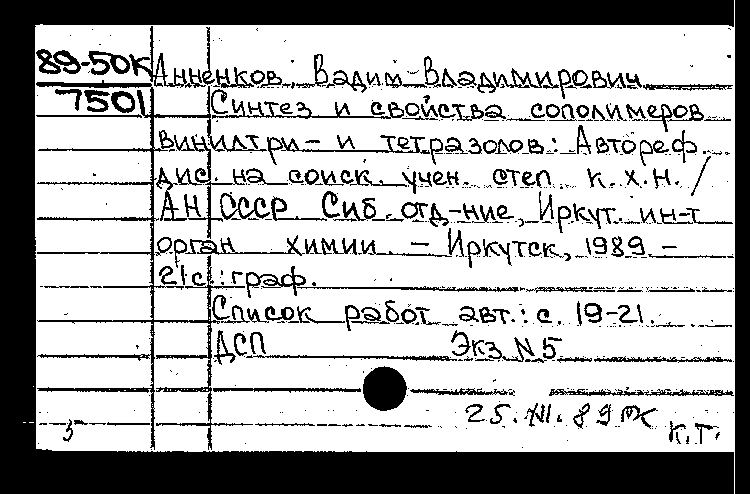 89-50К Анненков, Вадим Владимирович
7501 Синтез и свойства сополимеров
винилтри- и тетразолов: Автореф.
дис. на соиск. учен. степ. к.х.н. /
АН СССР. Сиб. отд-ние, Иркут. ин-т
орган химии. - Иркутск, 1989. -
21с.: граф.
Список работ авт.: с. 19-21.
ДСП Экз N5
25. XI. 89
К.Т.